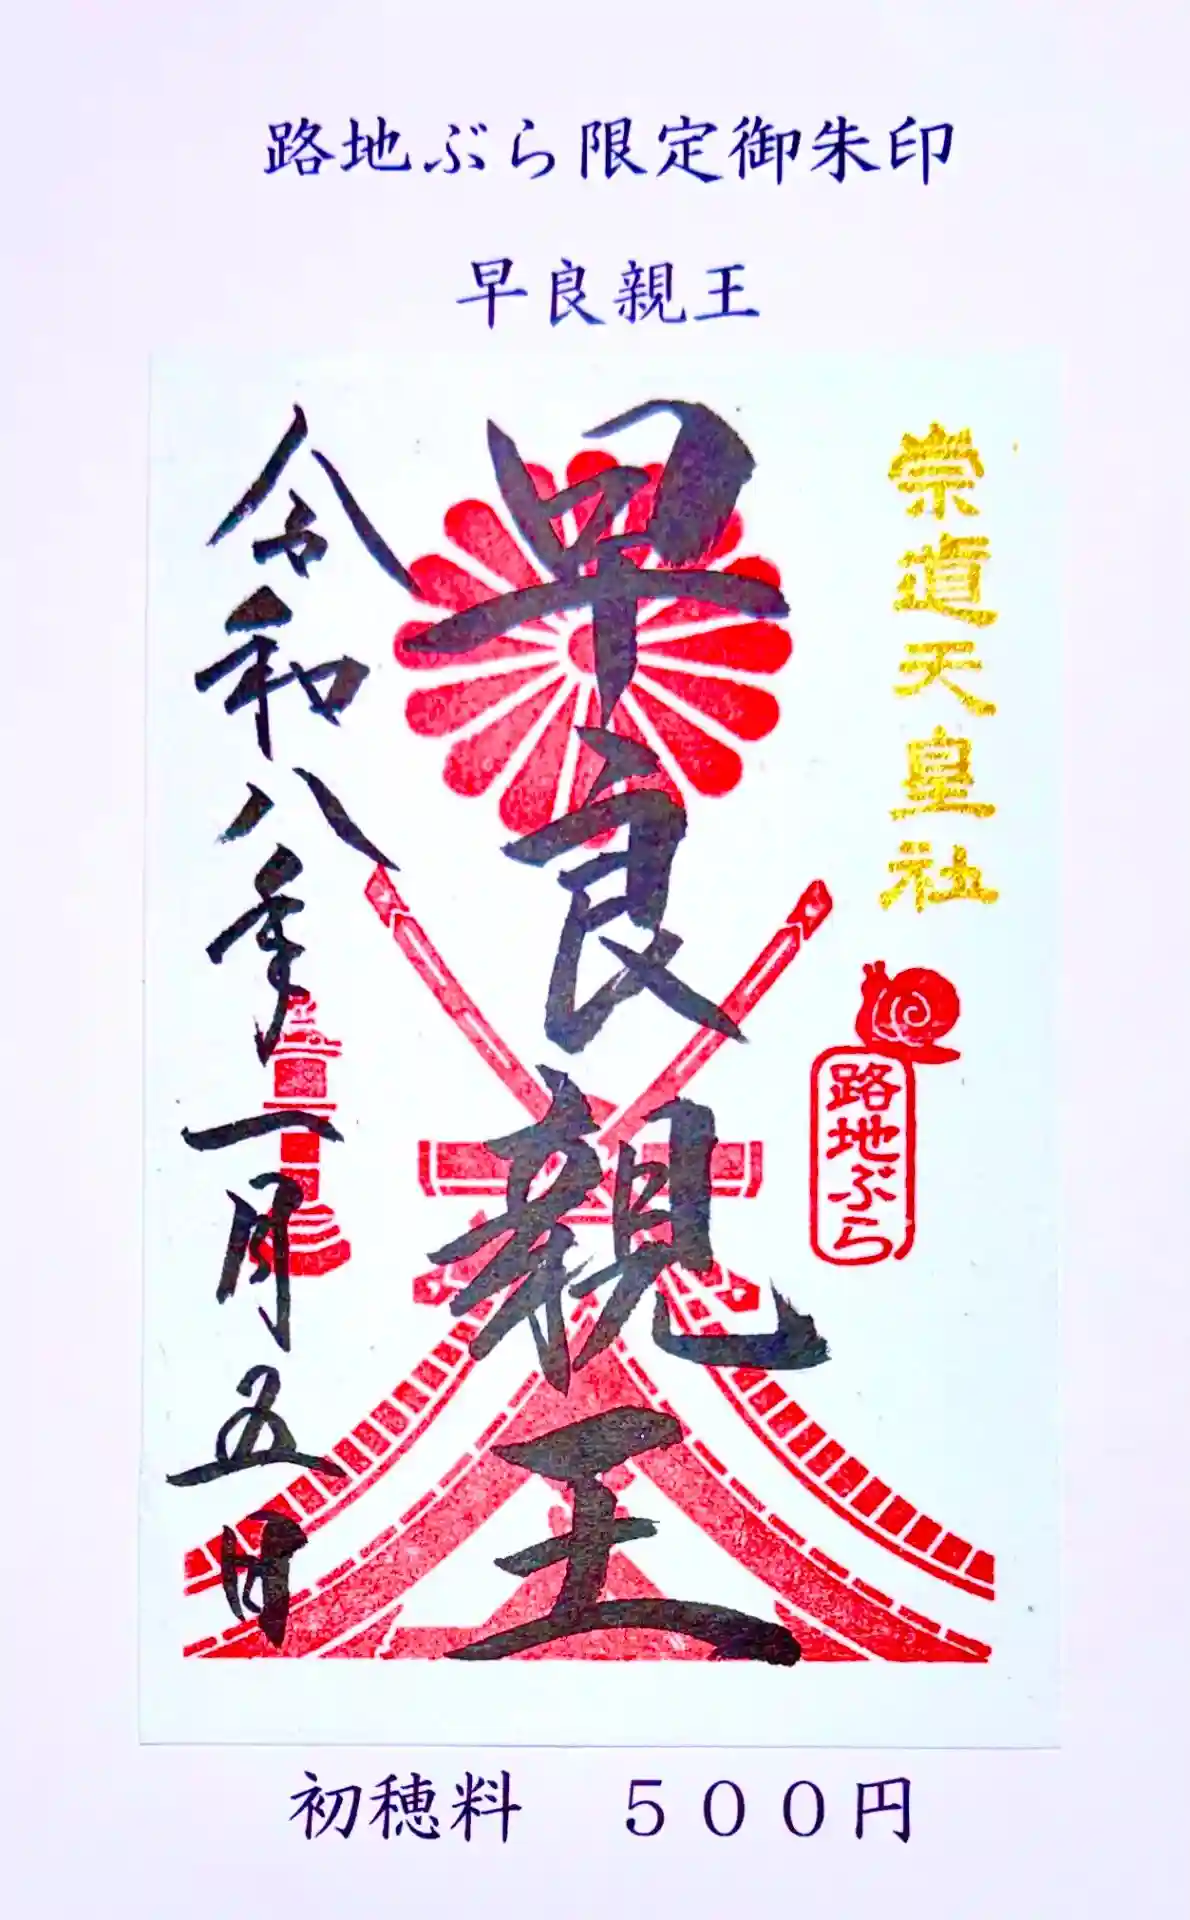 路地ぶら限定御朱印
早良親王
崇道天皇社
路地ぶら
早良親王
令和八年一月五日
初穂料　５００円